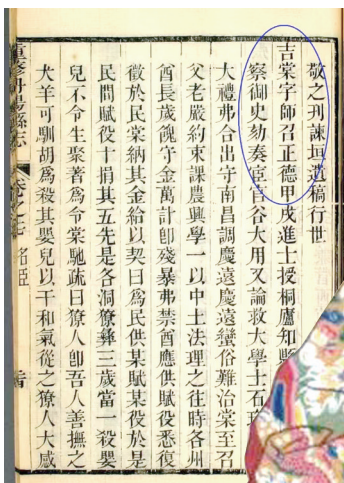 敬之刋諫垣遺稿行世
吉棠字師召正德甲戌進士授桐廬知縣
察御史劾奏宦官谷大用又論救大學士石珤
大禮弗合出守南昌調慶遠慶遠蠻俗難治棠至召
父老嚴約束課農興學一以中土法理之往時各州
酋長歲餽守金萬計卽殘暴弗禁酋應供賦役悉復
徵於民棠納其金給以契曰爲民供某賦某役於是
民間賦役十捐其五先是各洞獠彝三歲當一殺嬰
兒不令生聚著爲令棠馳疏曰獠人卽吾人善撫之
犬羊可馴胡爲殺其嬰兒以干和氣從之獠人大感
重修丹陽縣志 卷之 名臣